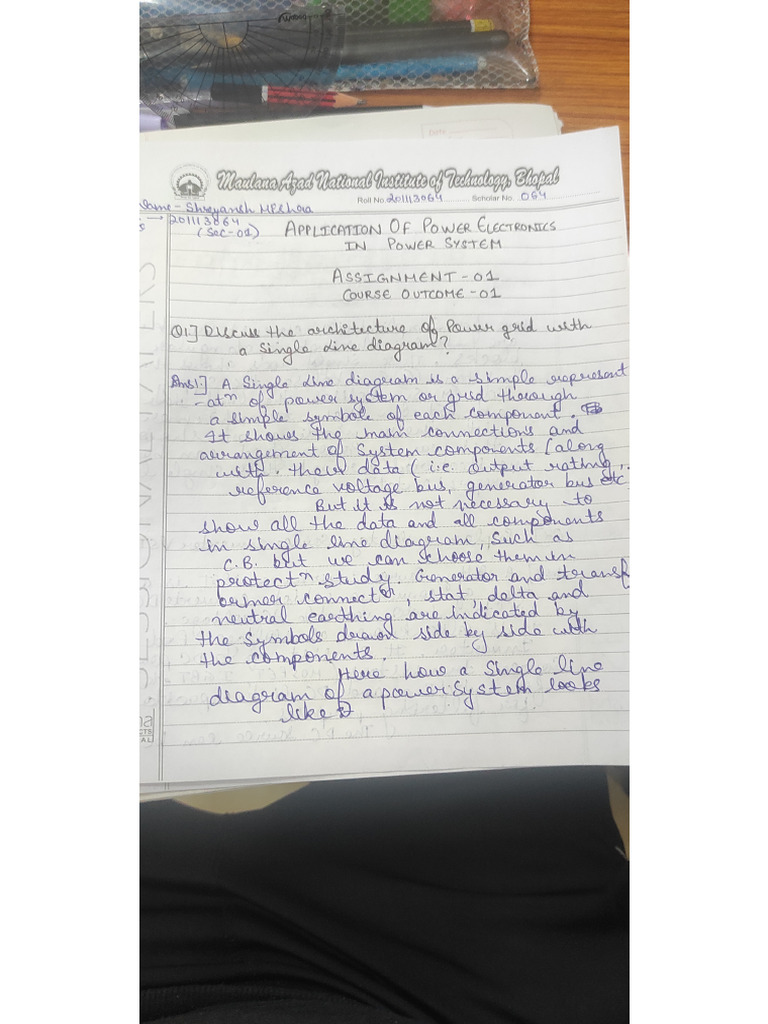 Maulana Azad National Institute of Technology, Bhopal
Roll No. 201113064 Scholar No. 064
Name - Shreyansh Mishra
→ 201113064
(Sec-01)
APPLICATION OF POWER ELECTRONICS
IN POWER SYSTEM
ASSIGNMENT - 01
COURSE OUTCOME - 01
Q1] Discuss the architecture of Power grid with
a Single Line diagram?
Ans1.] A Single Line diagram is a simple represent
-atn of power system or grid through
a simple symbols of each component.
It shows the main connections and
arrangement of System components (along
with. their data (i.e. output rating,
reference voltage bus, generator bus etc.
But it is not necessary to
show all the data and all components
in single line diagram, such as
C.B. but we can choose them in
protectn study. Generator and transf
ormer connectn, stat, delta and
neutral earthing are indicated by
the symbols drawn side by side with
the components.
Here how a Single line
diagram of a power system looks
like